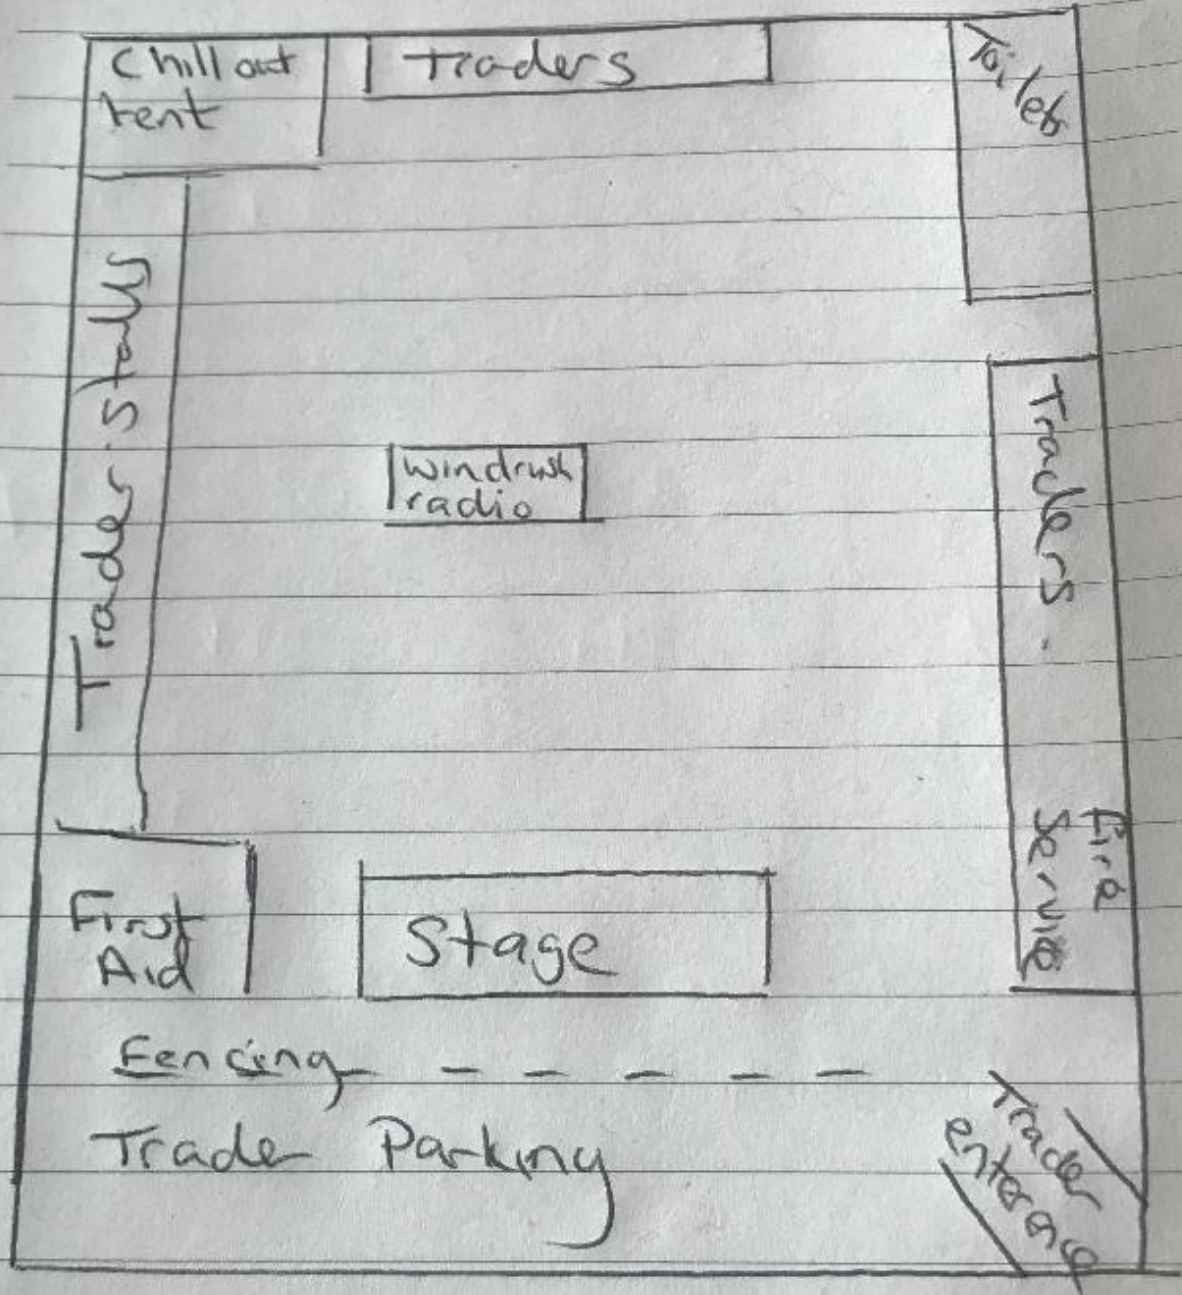 Chill out
tent
Traders
Toilets
Trader Stalls
windrush
radio
Traders.
Fire
Service
First
Aid
Stage
Fencing
Trader Parking
Trader
enterence